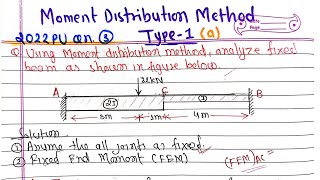 Moment Distribution Method
2022 PU Qn. ③ Type-1 (a)
Q Using Moment distribution method, analyze fixed
beam as shown in figure below.
32kN
A C B
(2I) (I)
3m 1m 4m
Solution
① Assume the all joints as fixed.
② Fixed End Moment (FEM)
(FEM)AC =